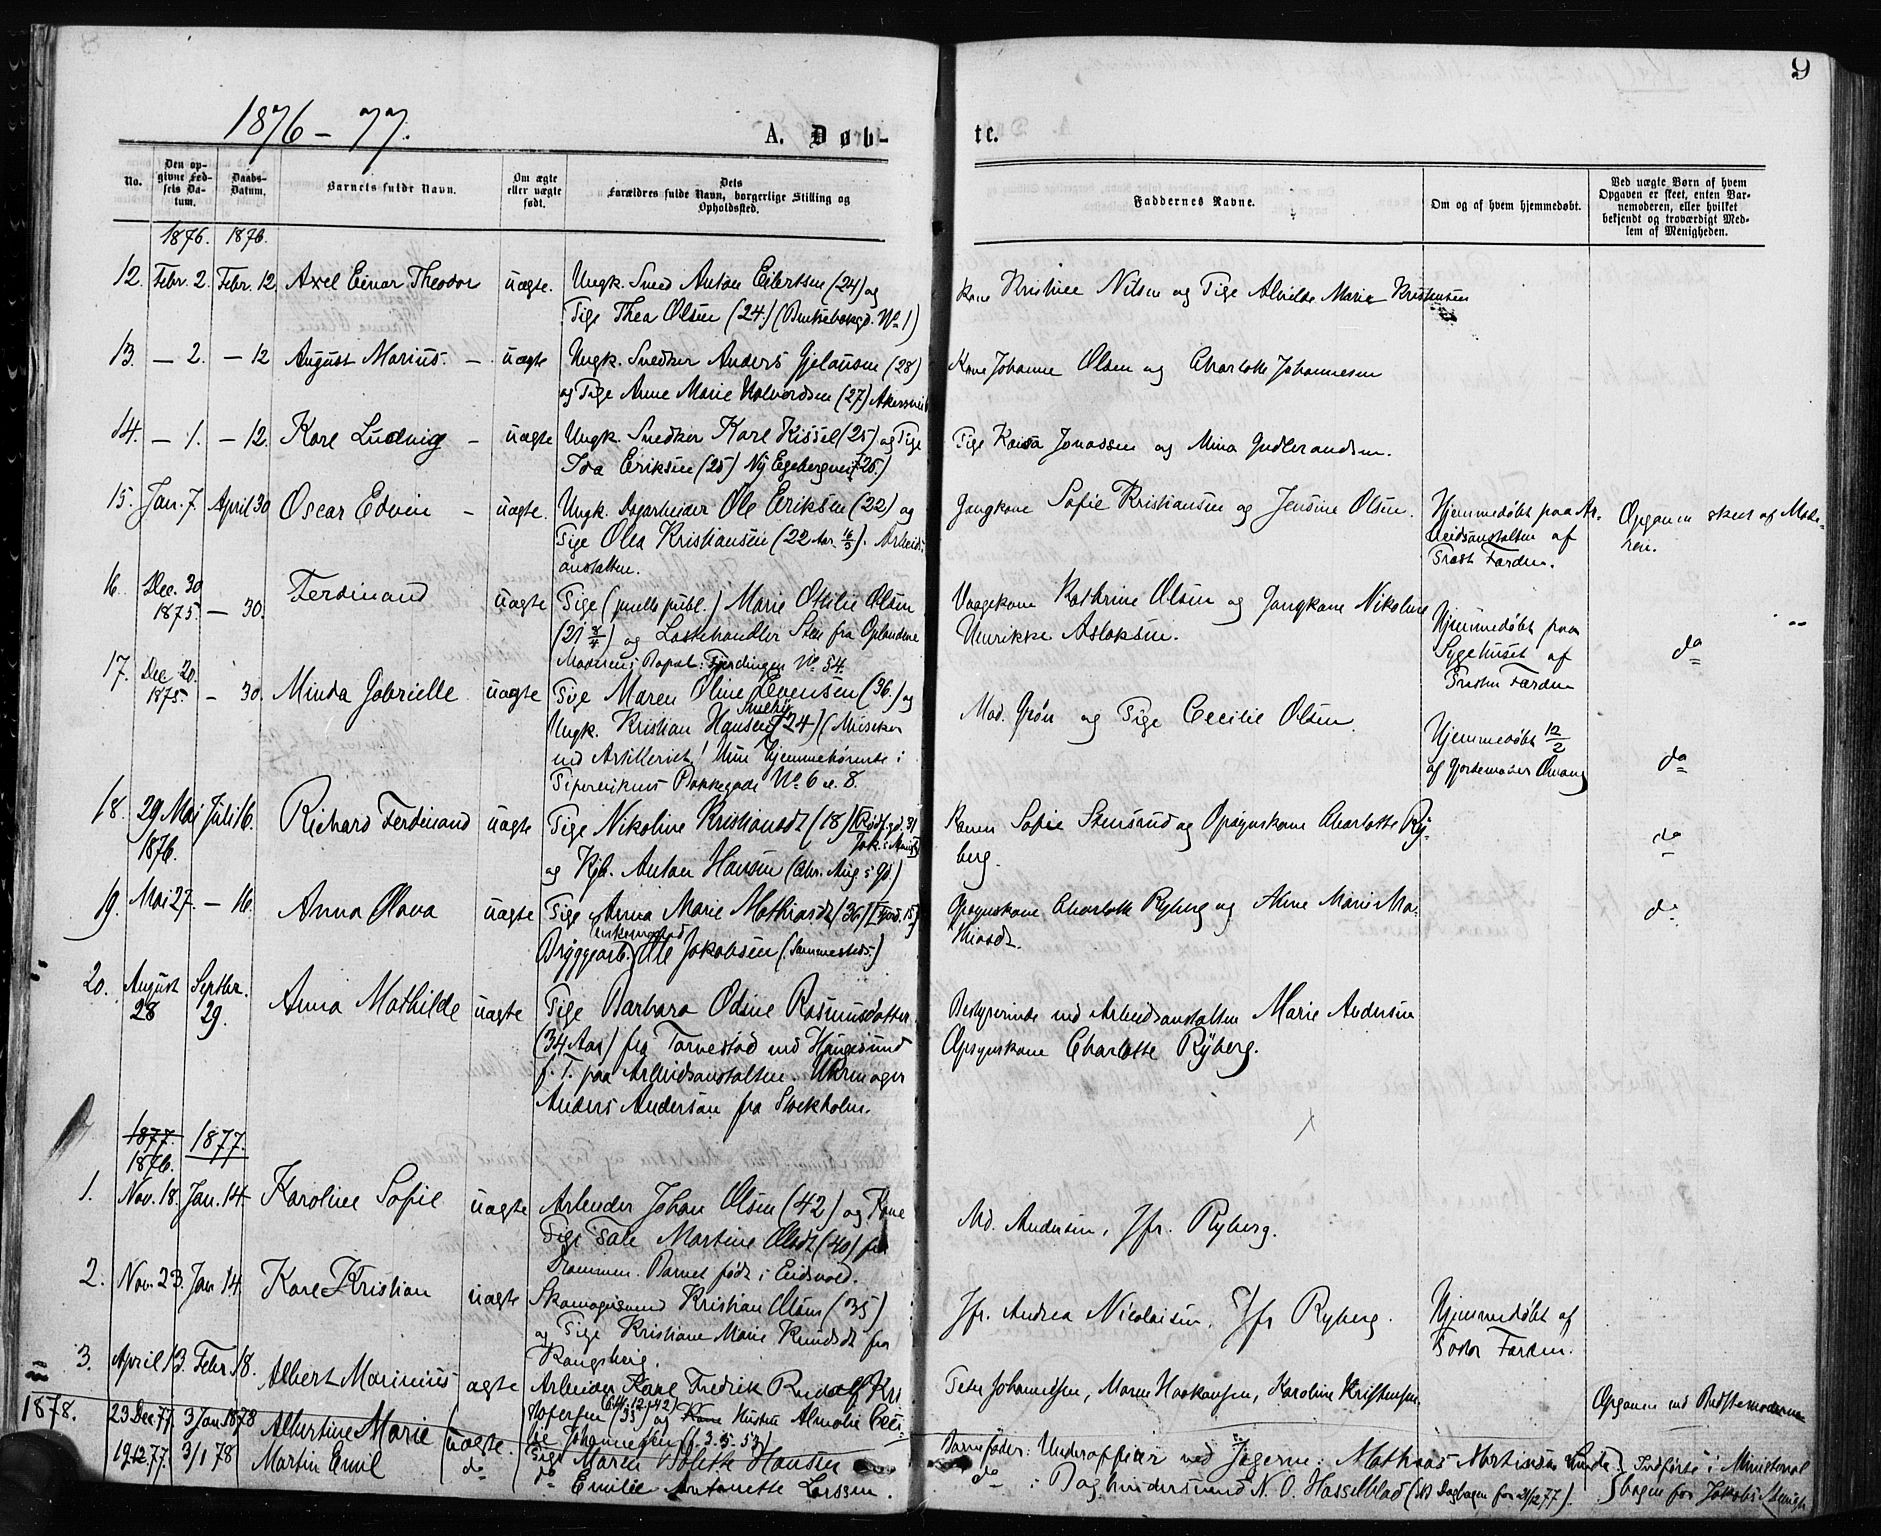 9
1876 – 77.
A. Døb-
te.
No.
Den opgivne Fødsels Datum.
Daabs-Datum.
Barnets fulde Navn.
Om ægte eller uægte født.
Dets Forældres fulde Navn, borgerlige Stilling og Opholdssted.
Faddernes Navne.
Om og af hvem hjemmedøbt.
Ved uægte Børn af hvem Opgaven er skeet, enten Barnemoderen, eller hvilket bekjendt og troværdigt Medlem af Menigheden.
1876. 1876.
12. Febr. 2. Febr. 12 Axel Einar Theodor uægte. Ungk. Smed Anton Eilertsen (24) og
Tige Thea Olsen (24) No 1)
Kone Nilsen og Pige Alvilde Marie Kristensen
13. — 2. — 12 August Marius. — uægte Ungk. Snedker Anders (28)
og Pige Anne Marie Halvordsen (27)
Kone Johanne Olsen og Charlotte Johannesen
14. — 1. — 12. Karl Ludvig — uægte Ungk. Snedker Karl Kissel (25) og Pige
Ida Eriksen (25) Ny Egebergvei 25.)
Pige Jonassen og Mina
15. Jan. 7. April 30 Oscar Edvin — uægte. Ungk. Dagarbeider Ole Eriksen (22) og
Pige Olea Kristiansen (22 Aar 6/5). Arbeids-
anstalten.
Gangkone Sofie Kristiansen og Jensine Olsen.
Hjemmedøbt paa Ar-
beidsanstalten af
Præst Færden.
Opgaven skeet af Mode-
ren.
16. Dec. 30 1875 — 30. Ferdinand uægte Pige (puella publ.) Marie Ottilie Olsen
(21 3/4) og Lassehandler Sten fra Oplandene
Moderens Bopæl: Fjerdingen No 54.
Vaagekone Kathrine Olsen og Gangkone Nikoline
Henrikke Aslaksen.
Hjemmedøbt paa
Sygehuset af
Præsten Færden
do
17. Dec. 20. 1875. — 30. Minda Gabrielle uægte Pige Maren Oline Evensen (36.) og
Ungk. Kristian Hansen (24) (Musiker
ved Artilleriet) hjemmehørende i
Pipervikens Bakkegade No 6 e. 8.
Mad. Grøn og Pige Cecilie Olsen.
Hjemmedøbt 12/2
af Gjordemoder
do
18. 29 Mai 1876. Juli 16. Richard Ferdinand uægte Pige Nikoline Kristiansdt (18)
og Anton Hansen
Konen Sofie Stensrud og Opsynskone Charlotte Ry-
berg.
do
19. Mai 27. — 16. Anna Olava uægte Pige Anna Marie Mathiasdt (36)
Enkemand
Bryggearb. Ole Jakobsen (sammesteds.)
Opsynskone Charlotte Ryberg og Anne Marie Ma-
thiasdt.
do
20. August 28 Septbr. 29. Anna Mathilde uægte Pige Barbara Odine Rasmusdatter
(34 Aar) fra Torvestad ved Haugesund
f. T. paa Arbeidsanstalten. Uhrmager
Anders Anderson fra Stockholm.
Bestyrerinde ved Arbeidsanstalten Marie Andersen
Opsynskone Charlotte Ryberg.
1877. 1877.
1876.
1. Nov. 18. Jan. 14. Karoline Sofie uægte Arbeider Johan Olsen (42) og Kone
Pige Tale Martine Olsdt (40) fra
Drammen. Barnet født i Eidsvold.
Md. Andersen, Jfr. Ryberg.
2. Nov. 23. Jan. 14. Karl Kristian uægte Skomagersvend Kristian Olsen (35)
og Pige Kristiane Marie Knudsdt fra
Kongsberg.
Jfr. Andrea Nicolaisen, Jfr Ryberg.
Hjemmedøbt af
Pastor Færden.
3. April 13. Febr. 18. Albert Marinius ægte Arbeider Karl Fredrik Rudolf Kri-
stofersen (35) og Kone Hustru Amalie Ceci-
lie Johannesen (f. 3.5.53)
Peter Johannessen, Maren Haakonsen, Karoline Kristensen
Opgaven ved Bedstemoderen
1878. 23 Dec. 77. 3 Jan. 1878 Albertine Marie uægte. Pige Maren Bolette Hansen
Barnefader: Underofficier ved Jægerne: Mathias Martinsen Lunde.
19/12 77. 3/1 78 Martin Emil do do Emilie Antonette Larssen.
do : Daghmdersvend N. O. Hasselblad (se Dagbogen for 21/12 77).
Indførte i Ministerial
bogen for Jakobs Menigh